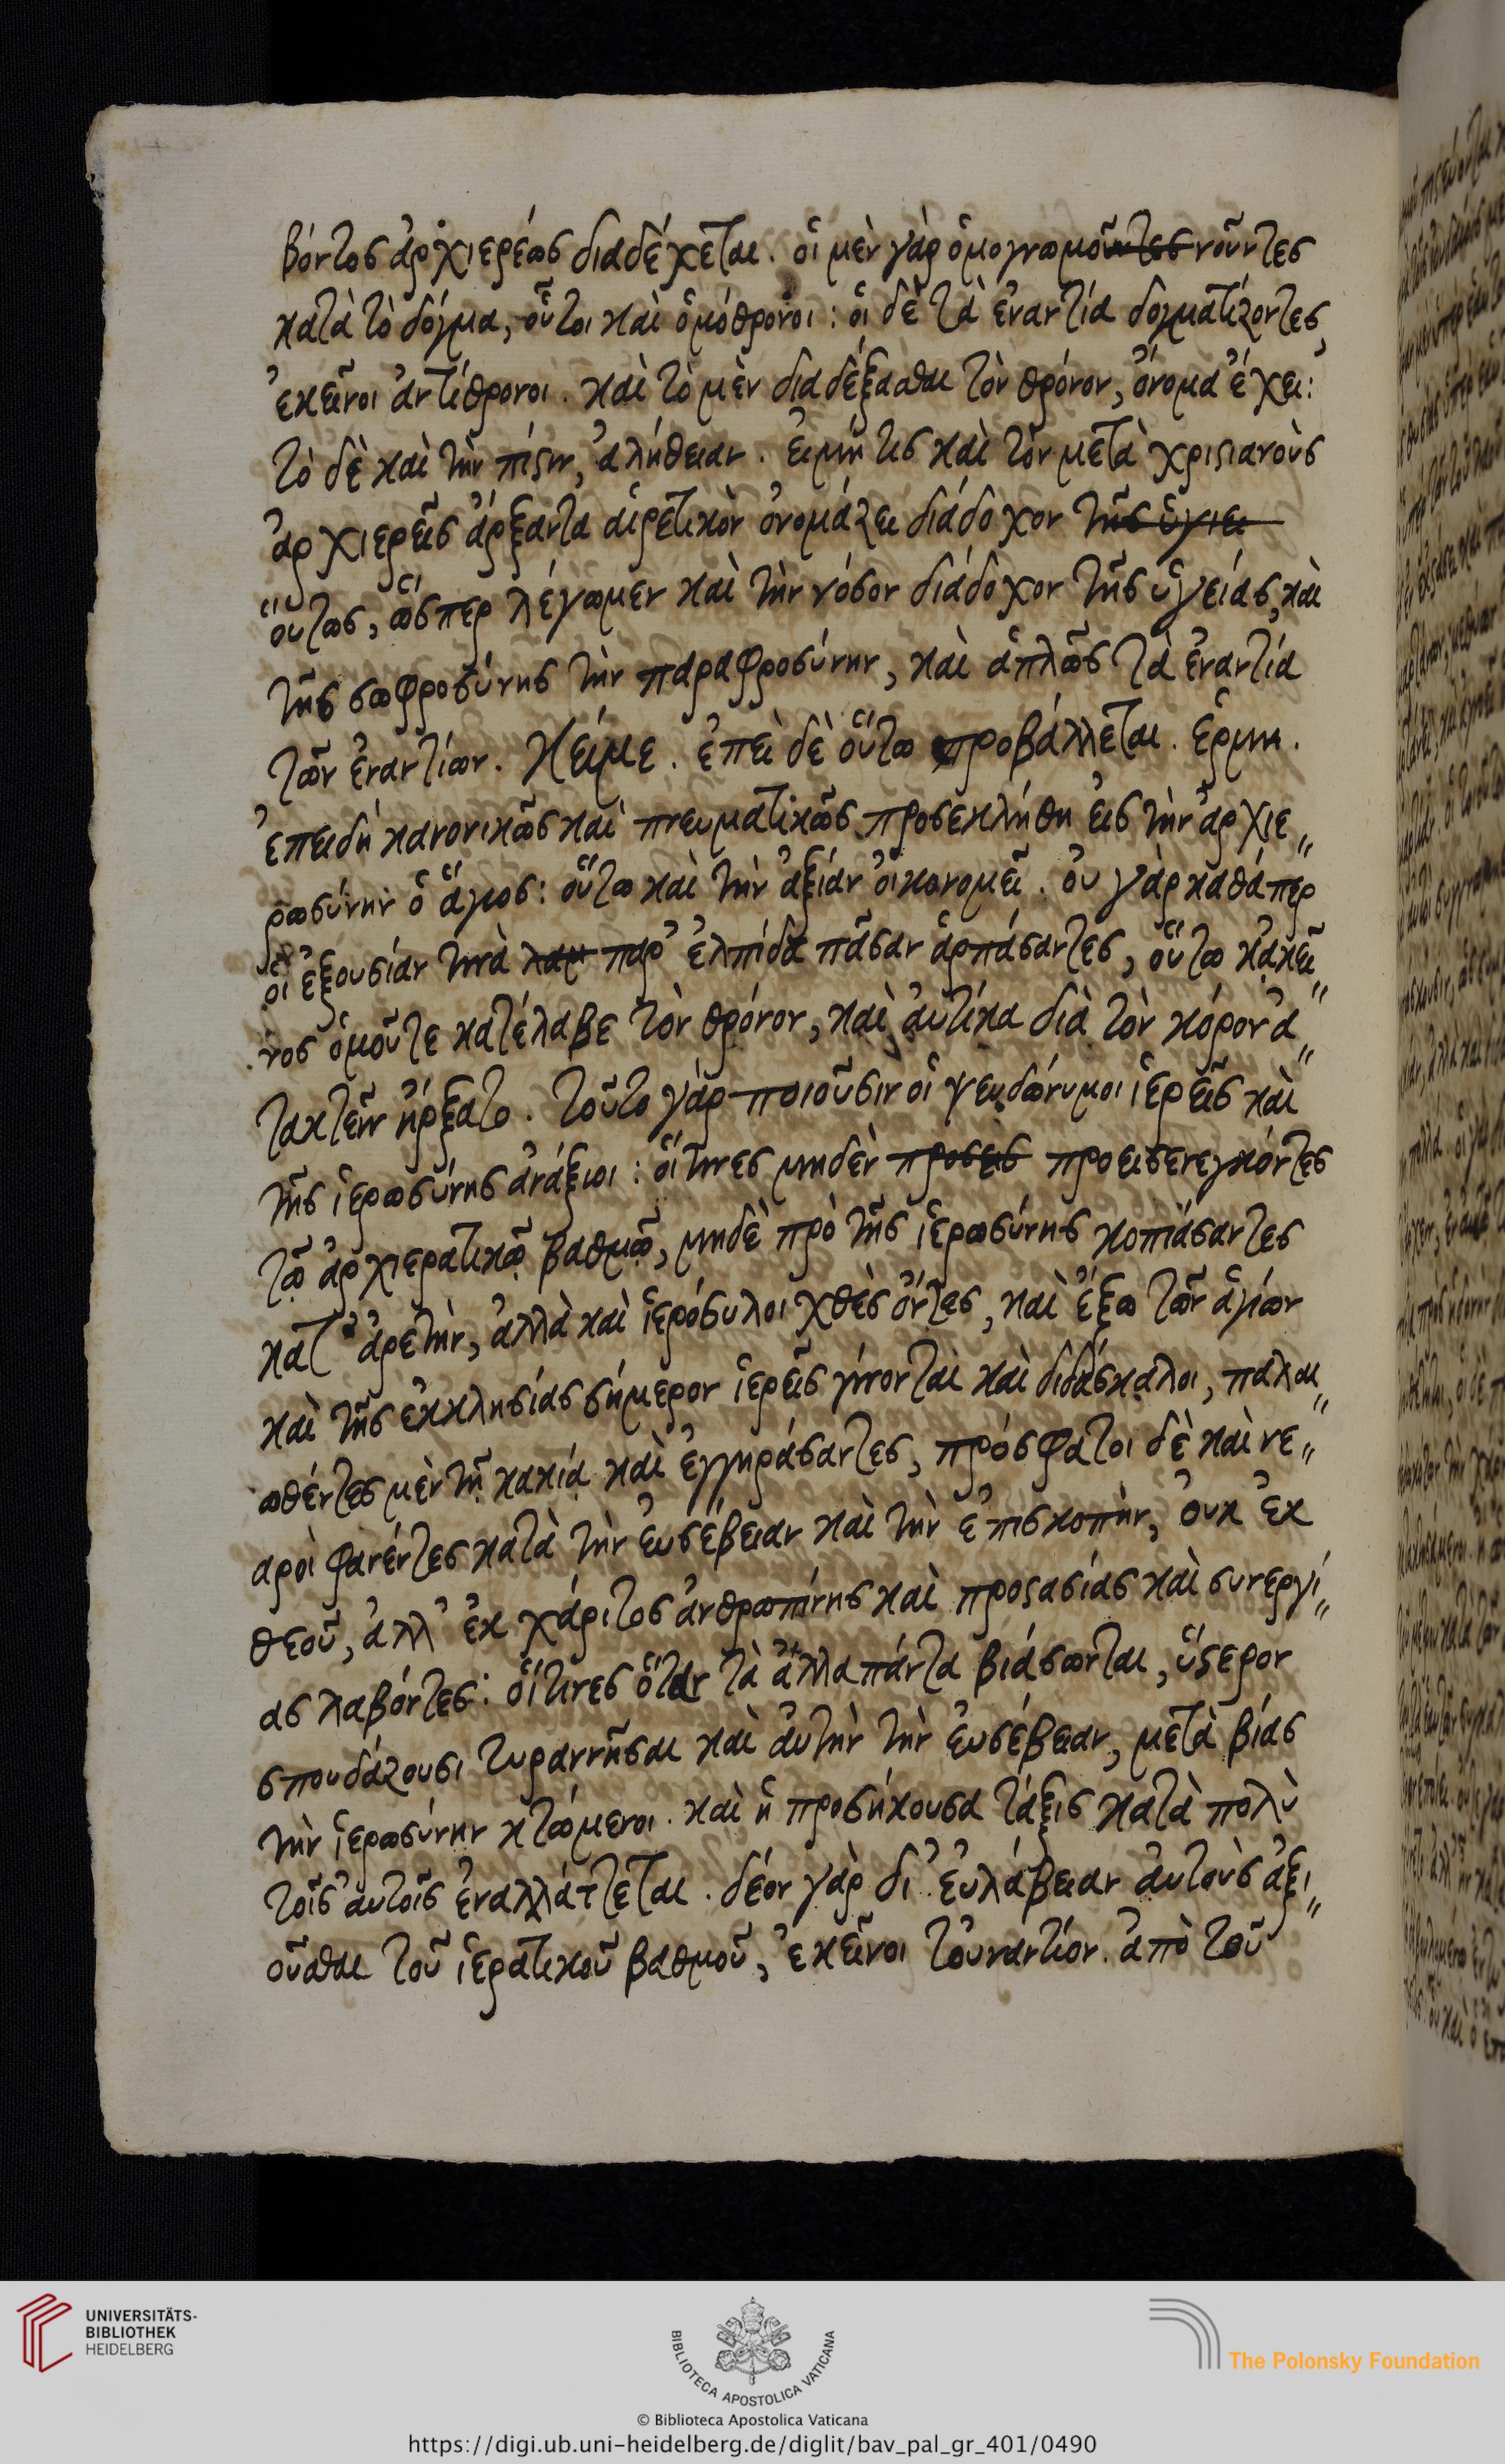 βόντος ἀρχιερέως διαδέχεται. οἱ μὲν γὰρ ὁμογνωμοῦντες νοῦντες
κατὰ τὸ δόγμα, οὗτοι καὶ ὁμόθρονοι : οἱ δὲ τὰ ἐναντία δογματίζοντες,
ἐκεῖνοι ἀντίθρονοι. καὶ τὸ μὲν διαδέξασθαι τὸν θρόνον, ὄνομα ἔχει:
τὸ δὲ καὶ τὴν πίστιν, ἀλήθειαν. εἰμή τις καὶ τὸν μετὰ χριστιανοὺς
ἀρχιερεῖς ἄρξαντα αἱρετικὸν ὀνομάζει διάδοχον τῆς ὑγιει
οὕτως, ὥσπερ λέγωμεν καὶ τὴν νόσον διάδοχον τῆς ὑγείας, καὶ
τῆς σωφροσύνης τὴν παραφροσύνην, καὶ ἁπλῶς τὰ ἐναντία
τῶν ἐναντίων. Κείμε. ἐπεὶ δὲ οὕτω προβάλλεται. ἑρμη.
ἐπειδὴ κανονικῶς καὶ πνευματικῶς προσεκλήθη εἰς τὴν ἀρχιε„
ρωσύνην ὁ ἅγιος: οὕτω καὶ τὴν ἀξίαν οἰκονομεῖ. οὐ γὰρ καθάπερ
οἱ ἐξουσίαν τινὰ λαμ παρ' ἐλπίδα πᾶσαν ἁρπάσαντες, οὕτω κἀκεῖ„
νος ὁμοῦτε κατέλαβε τὸν θρόνον, καὶ αὐτίκα διὰ τὸν κόρον ἀ„
τακτεῖν ἤρξατο. τοῦτο γὰρ ποιοῦσιν οἱ ψευδώνυμοι ἱερεῖς καὶ
τῆς ἱερωσύνης ἀνάξιοι : οἵτινες μηδὲν προσεις προεισενεγκόντες
τῷ ἀρχιερατικῷ βαθμῷ, μηδὲ πρὸ τῆς ἱερωσύνης κοπιάσαντες
κατ' ἀρετὴν, ἀλλὰ καὶ ἱερόσυλοι χθὲς ὄντες, καὶ ἔξω τῶν ἁγίων
καὶ τῆς ἐκκλησίας σήμερον ἱερεῖς γίνονται καὶ διδάσκαλοι, παλαι„
ωθέντες μὲν τῇ κακίᾳ καὶ ἐγγηράσαντες, πρόσφατοι δὲ καὶ νε„
αροὶ φανέντες κατὰ τὴν εὐσέβειαν καὶ τὴν ἐπισκοπὴν, οὐκ ἐκ
θεοῦ, ἀλλ' ἐκ χάριτος ἀνθρωπίνης καὶ προστασίας καὶ συνεργί„
ας λαβόντες: οἵτινες ὅταν τὰ ἄλλα πάντα βιάσωνται, ὕστερον
σπουδάζουσι τυραννῆσαι καὶ αὐτὴν τὴν εὐσέβειαν, μετὰ βίας
τὴν ἱερωσύνην κτώμενοι. καὶ ἡ προσήκουσα τάξις κατὰ πολὺ
τοῖς αὐτοῖς ἐναλλάττεται. δέον γὰρ δι' εὐλάβειαν αὐτοὺς ἀξι„
οῦσθαι τοῦ ἱερατικοῦ βαθμοῦ, ἐκεῖνοι τοὐναντίον. ἀπὸ τοῦ
UNIVERSITÄTS-
BIBLIOTHEK
HEIDELBERG
BIBLIOTECA APOSTOLICA VATICANA
The Polonsky Foundation
© Biblioteca Apostolica Vaticana
https://digi.ub.uni-heidelberg.de/diglit/bav_pal_gr_401/0490